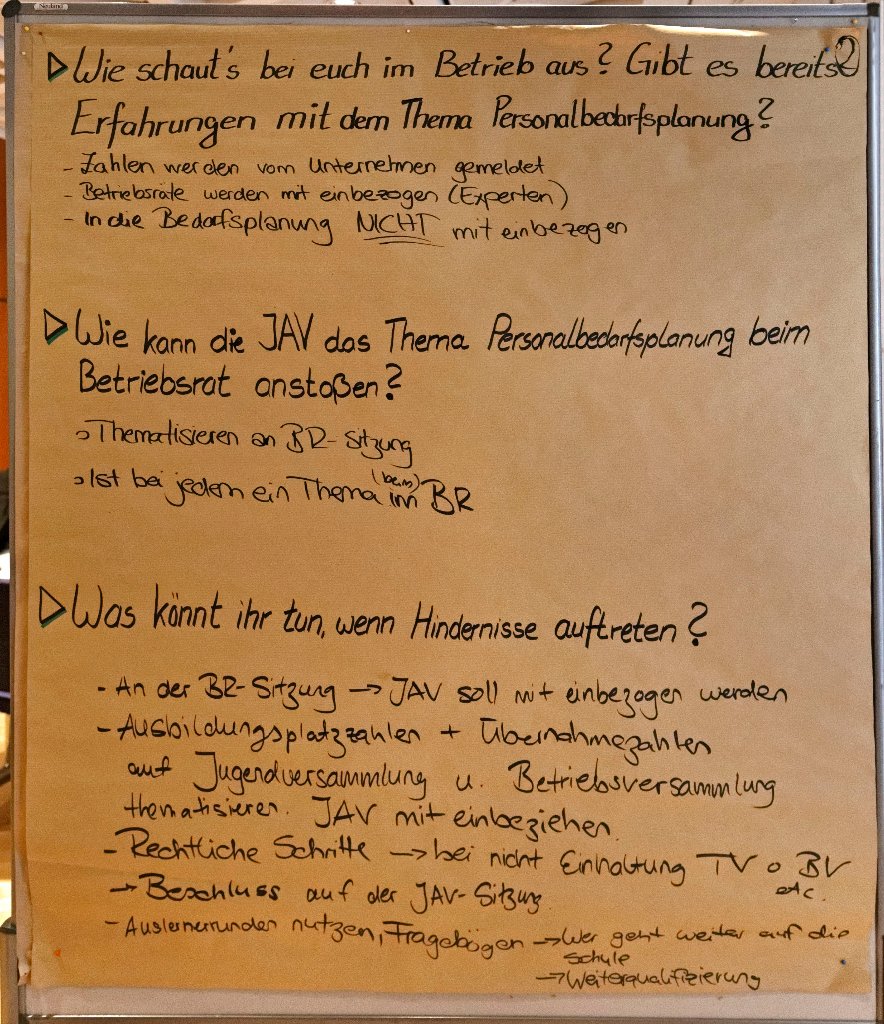 Neuland
2
▷ Wie schaut's bei euch im Betrieb aus? Gibt es bereits
Erfahrungen mit dem Thema Personalbedarfsplanung?
- Zahlen werden vom Unternehmen gemeldet
- Betriebsräte werden mit einbezogen (Experten)
- In die Bedarfsplanung NICHT mit einbezogen
▷ Wie kann die JAV das Thema Personalbedarfsplanung beim
Betriebsrat anstoßen?
o Thematisieren an BR-Sitzung
o Ist bei jedem ein Thema im (beim) BR
▷ Was könnt ihr tun, wenn Hindernisse auftreten?
- An der BR-Sitzung → JAV soll mit einbezogen werden
- Ausbildungsplatzzahlen + Übernahmezahlen
auf Jugendversammlung u. Betriebsversammlung
thematisieren. JAV mit einbeziehen.
- Rechtliche Schritte → bei nicht Einhaltung TV o BV
etc.
→ Beschluss auf der JAV-Sitzung.
- Auslernerrunden nutzen, Fragebögen → Wer geht weiter auf die
Schule
→ Weiterqualifizierung